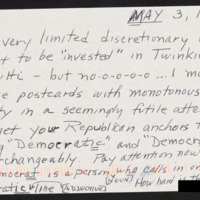 MAY 3, 1
very limited discretionary
t to be "invested" in Twinkie
ulti - but no-o-o-o-o ... I m
e postcards with monotonous
ty in a seemingly futile atte
get your Republican anchors t
g "Democratic" and "Democra
rchangeably. Pay attention now
mocrat is a person who calls in on
ratic" line [ADJECTIVE] [NOUN] How hard is th